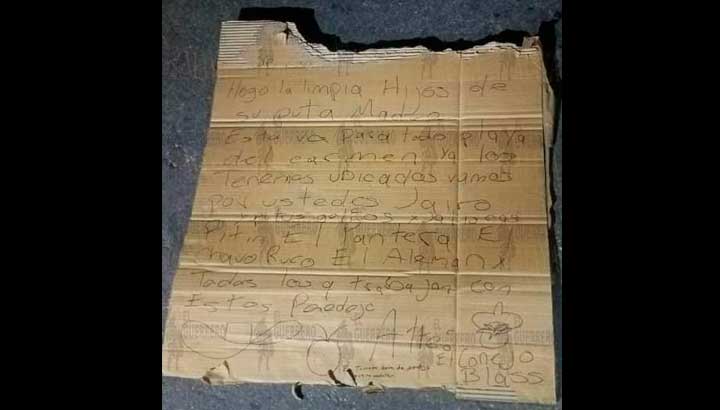 Hego la limpia Hijos de
su puta Madre
Esta va para todo playa
del carmen ya los
Tenemos ubicados vamos
por ustedes Jairo
Pitin El Pantera El
chavo Ruco El Aleman x
Todos los q trabajan con
Estos Pendejo
Att
El Conejo
Blass
EL GUERRERO
GUERRERO